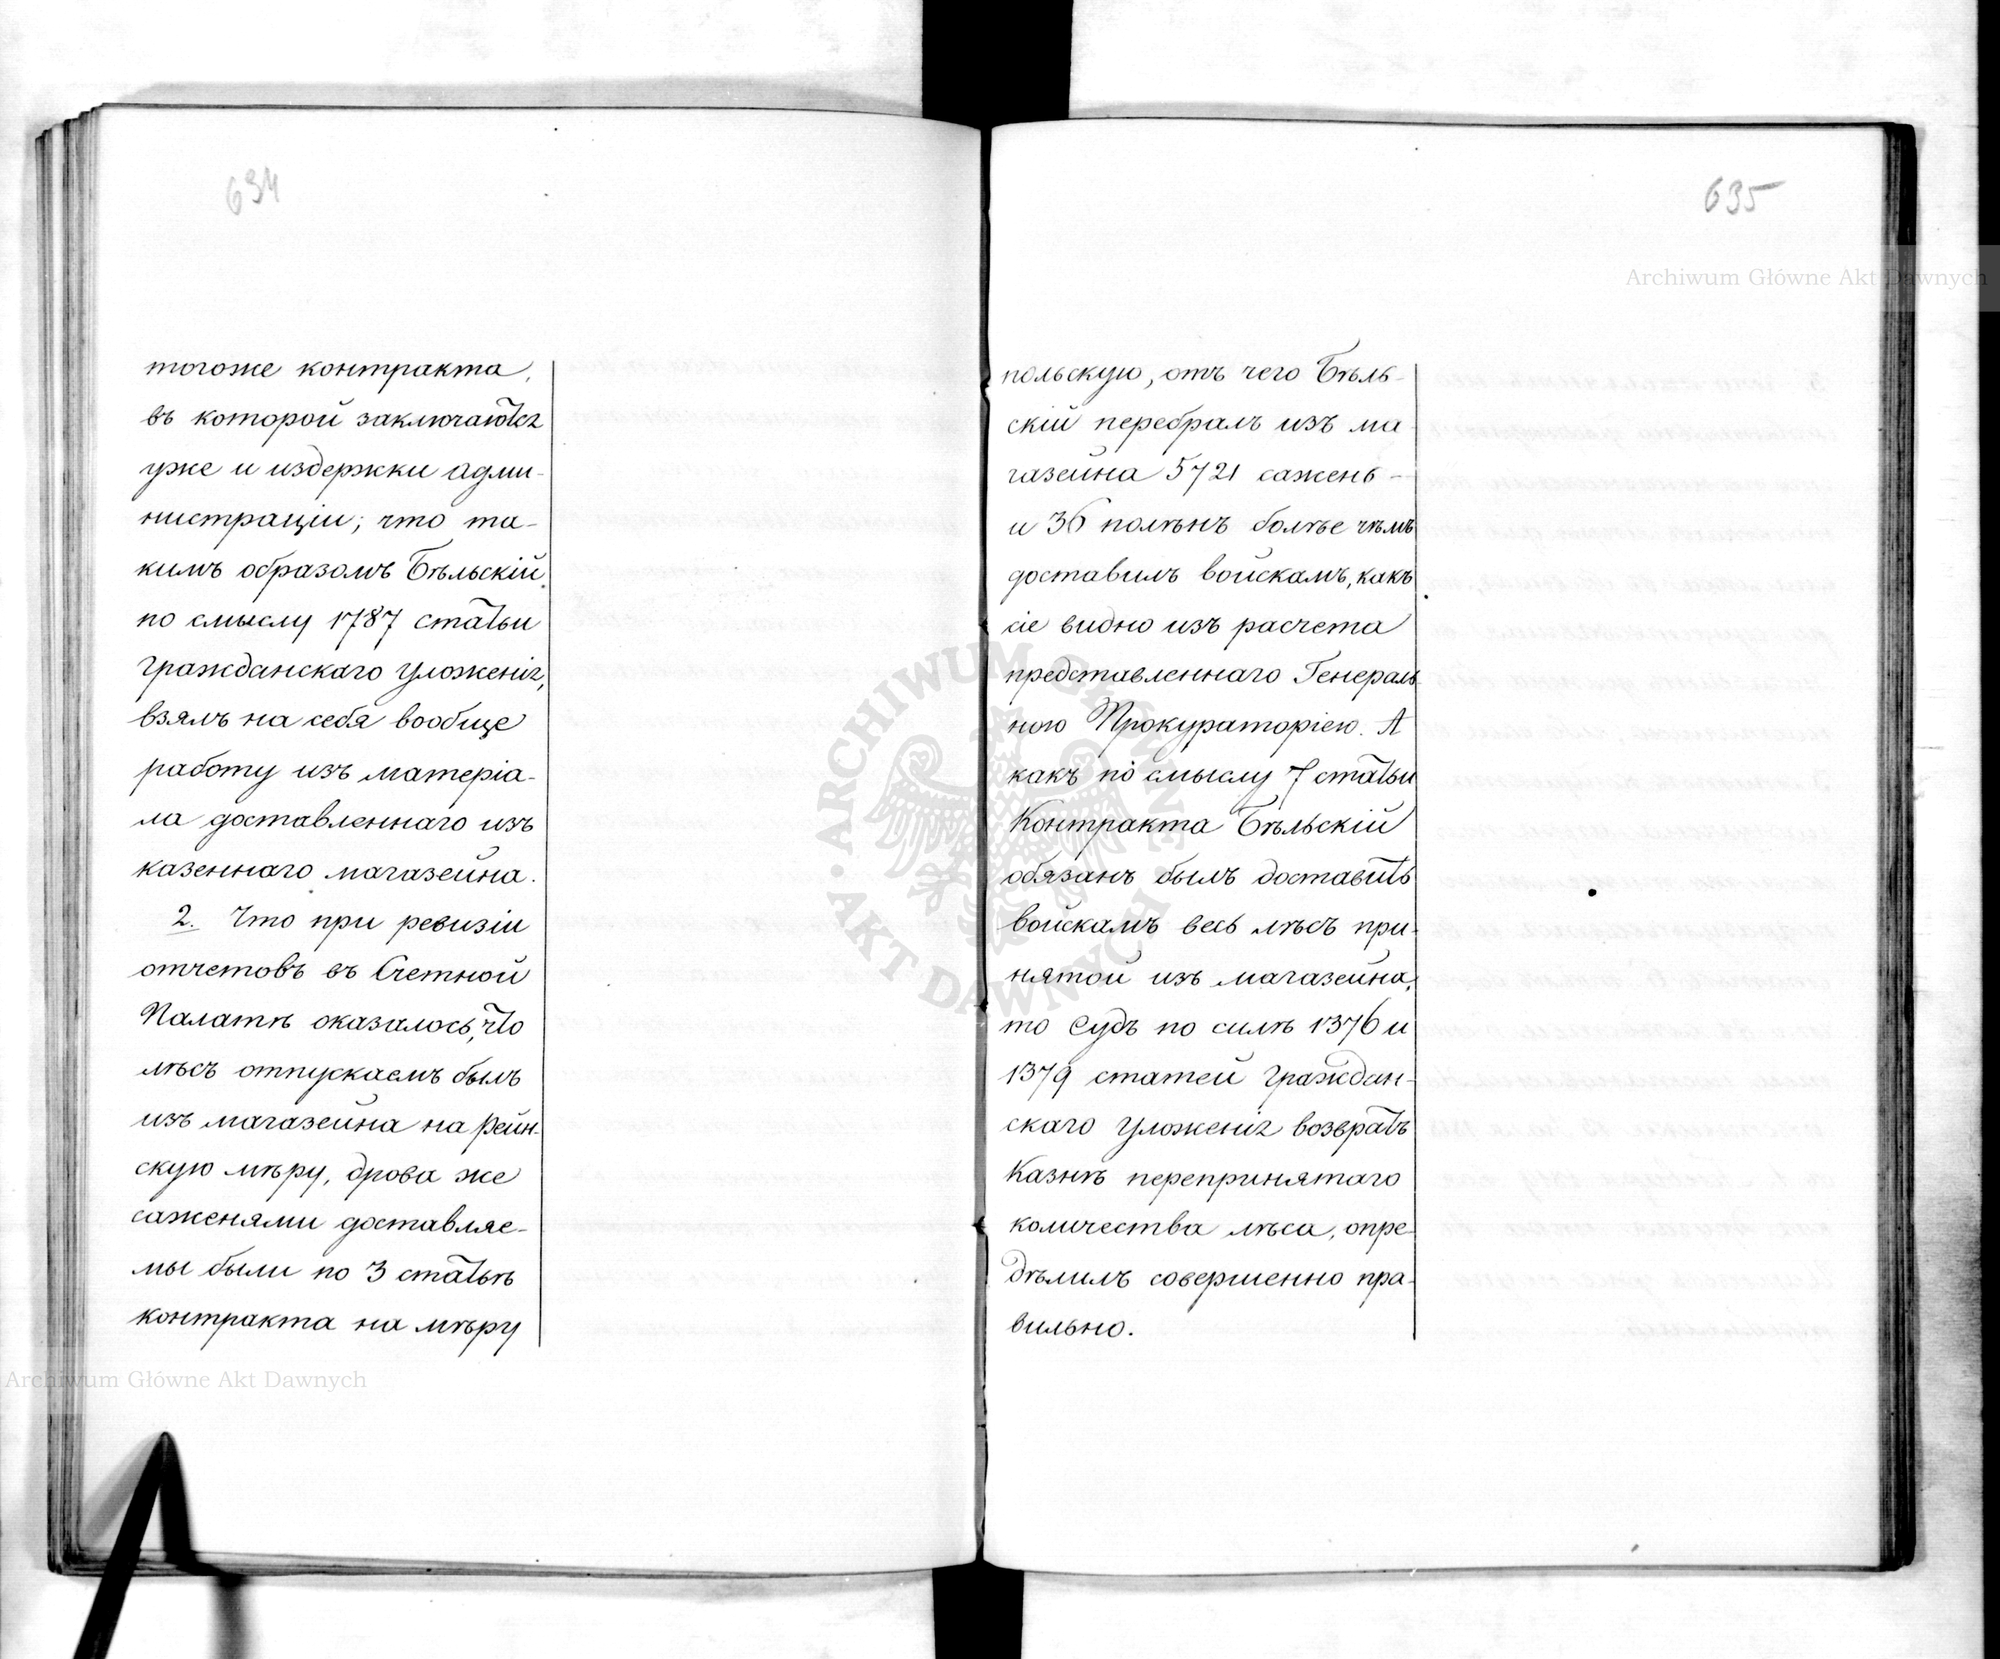 634
тогоже контракта,
въ которой заключаются
уже и издержки адми-
нистраціи; что та-
кимъ образомъ Бѣльскій,
по смыслу 1787 статьи
Гражданскаго Уложенія,
взялъ на себя вообще
работу изъ матеріа-
ла доставленнаго изъ
казеннаго магазейна.
2. Что при ревизіи
отчетовъ въ Счетной
Палатѣ оказалось, что
лѣсъ отпускаемъ былъ
изъ магазейна на Рейн-
скую мѣру, дрова же
саженями доставляе-
мы были по 3 статьѣ
контракта на мѣру
635
польскую, отъ чего Бѣль-
скій перебралъ изъ ма-
газейна 5721 сажень -
и 36 полѣнъ болѣе чѣмъ
доставилъ войскамъ, какъ
сіе видно изъ расчета
представленнаго Генераль-
ною Прокураторіею. А
какъ по смыслу 7 статьи
Контракта Бѣльскій
обязанъ былъ доставить
войскамъ весь лѣсъ при-
нятой изъ магазейна,
то Судъ по силѣ 1376 и
1379 статей Граждан-
скаго Уложенія возвратъ
Казнѣ перепринятаго
количества лѣса, опре-
дѣлилъ совершенно пра-
вильно.
Archiwum Główne Akt Dawnych
Archiwum Główne Akt Dawnych
ARCHIWUM GŁÓWNE AKT DAWNYCH